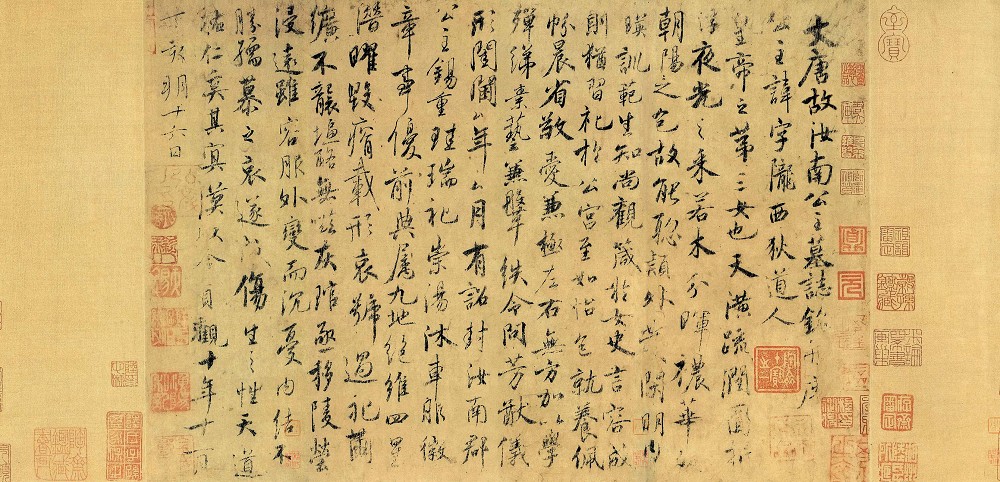 大唐故汝南公主墓誌銘并序
公主諱字隴西狄道人
皇帝之第三女也天潢疏潤圓折
浮夜光之采若木分暉穠華
朝陽之色故能聡穎外發閑明内
暎訓範生知尚觀箴於女史言容成
則猶習礼於公宮至如怡色就養佩
帉晨省敬愛兼極左右無方加以學
殫綈素藝兼鞶紩令問芳猷儀
形閨閫厶年厶月有詔封汝南郡
公主錫重珪瑞礼崇湯沐車服徽
章事優前典屬九地絕維四星
潛曜毀瘠載形哀號過礼繭
纊不襲塩酪無嗞灰琯亟移陵塋
浸遠雖容服外變而沉憂内結不
勝孺慕之哀遂成傷生之性天道
祐仁奚其冥漠以今貞觀十年十一月
丁亥朔十六日